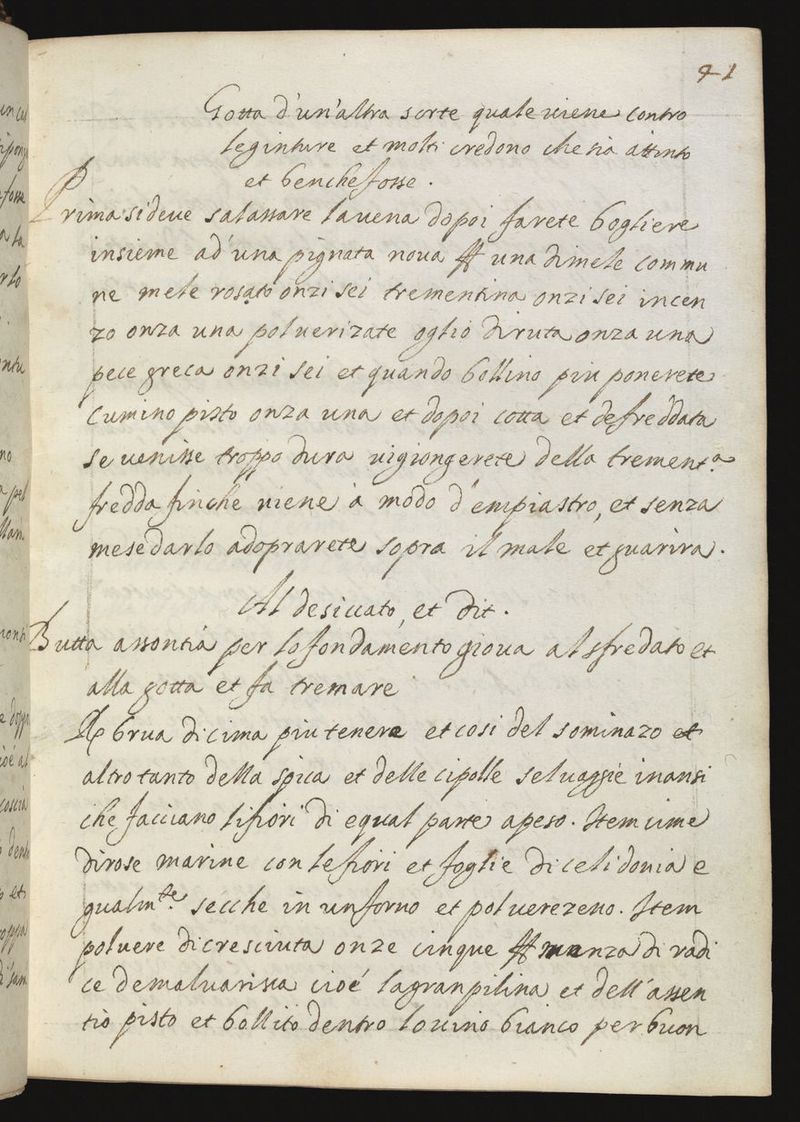 41
Gotta d'un'altra sorte quale viene contro
leginture et molti credono che sia attinto
et benche fosse.
Prima si deve salassare la vena dopoi farete bogliere
insieme ad' una pignata nova ℔ una di mele commu
ne mele rosato onzi sei trementina onzi sei incen
zo onza una polverizate oglio di ruta onza una
pece greca onzi sei et quando bollino piu ponerete
Cumino pisto onza una et dopoi cotta et defreddata
se venisse troppo dura vi giongerete della trement.a
fredda finche viene à modo d'empiastro, et senza
mesedarlo adoprarete sopra il male et guarira.
Al desiccato, et dit.
Butta assontia per lo fondamento giova al sfredato et
alla gotta et fa tremare
℞ brua di cima piu tenere et cosi del sominazo et
altro tanto della spica et delle cipolle selvaggie inansi
che facciano li fiori di equal parte a peso. Item cime
di rose marine con le fiori et foglie di celidonia e
qualm.te secche in un forno et polverezeno. Item
polvere di cresciuta onze cinque ℔ di radi
ce de malvarissa cioé la granpilina et dell'assen
tio pisto et bollito dentro lo vino bianco per buon